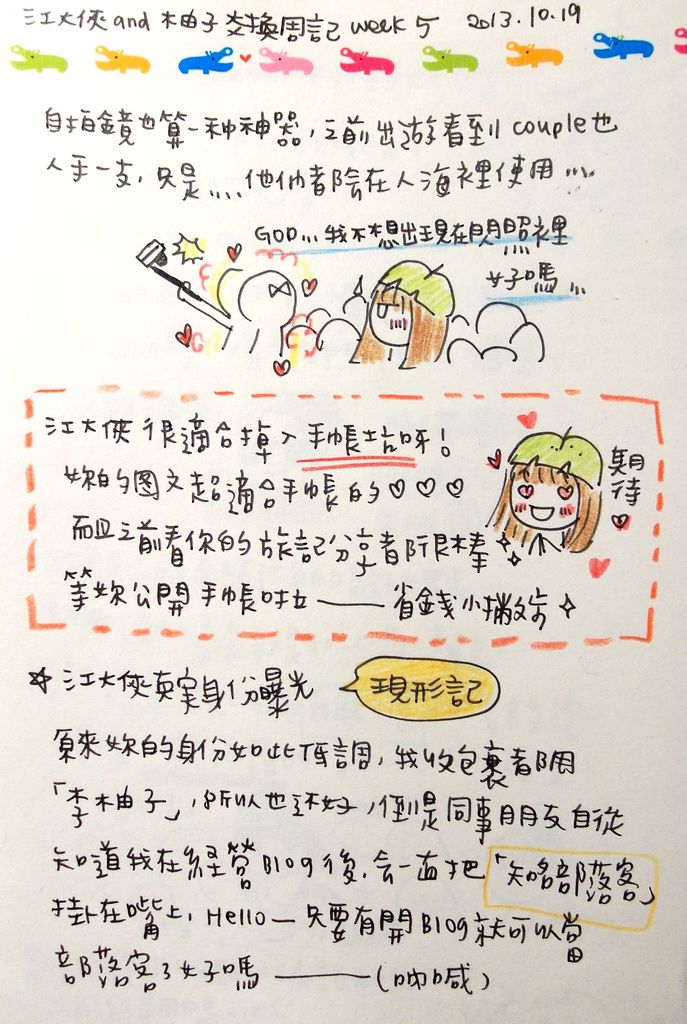 江大俠 and 柚子 交換周記 week 5 2013.10.19
自拍鏡也算一种神器，之前出遊看到 couple 也
人手一支，只是.... 他们都会在人海裡使用....
GOD... 我不想出現在閃照裡
好嗎...
江大俠很適合掉入手帳坑呀！
妳的图文超適合手帳的♡♡♡
而且之前看你的旅記分享都很棒
等妳公開手帳啦——省錢小撇步
期待
江大俠真实身份曝光
現形記
原來妳的身份如此低調，我收包裹都用
「李柚子」，所以也还好，倒是同事朋友自從
知道我在經營Blog後，会一直把「知名部落客」
掛在嘴上，Hello— 只要有開Blog就可以當
部落客了好嗎——(吶喊)